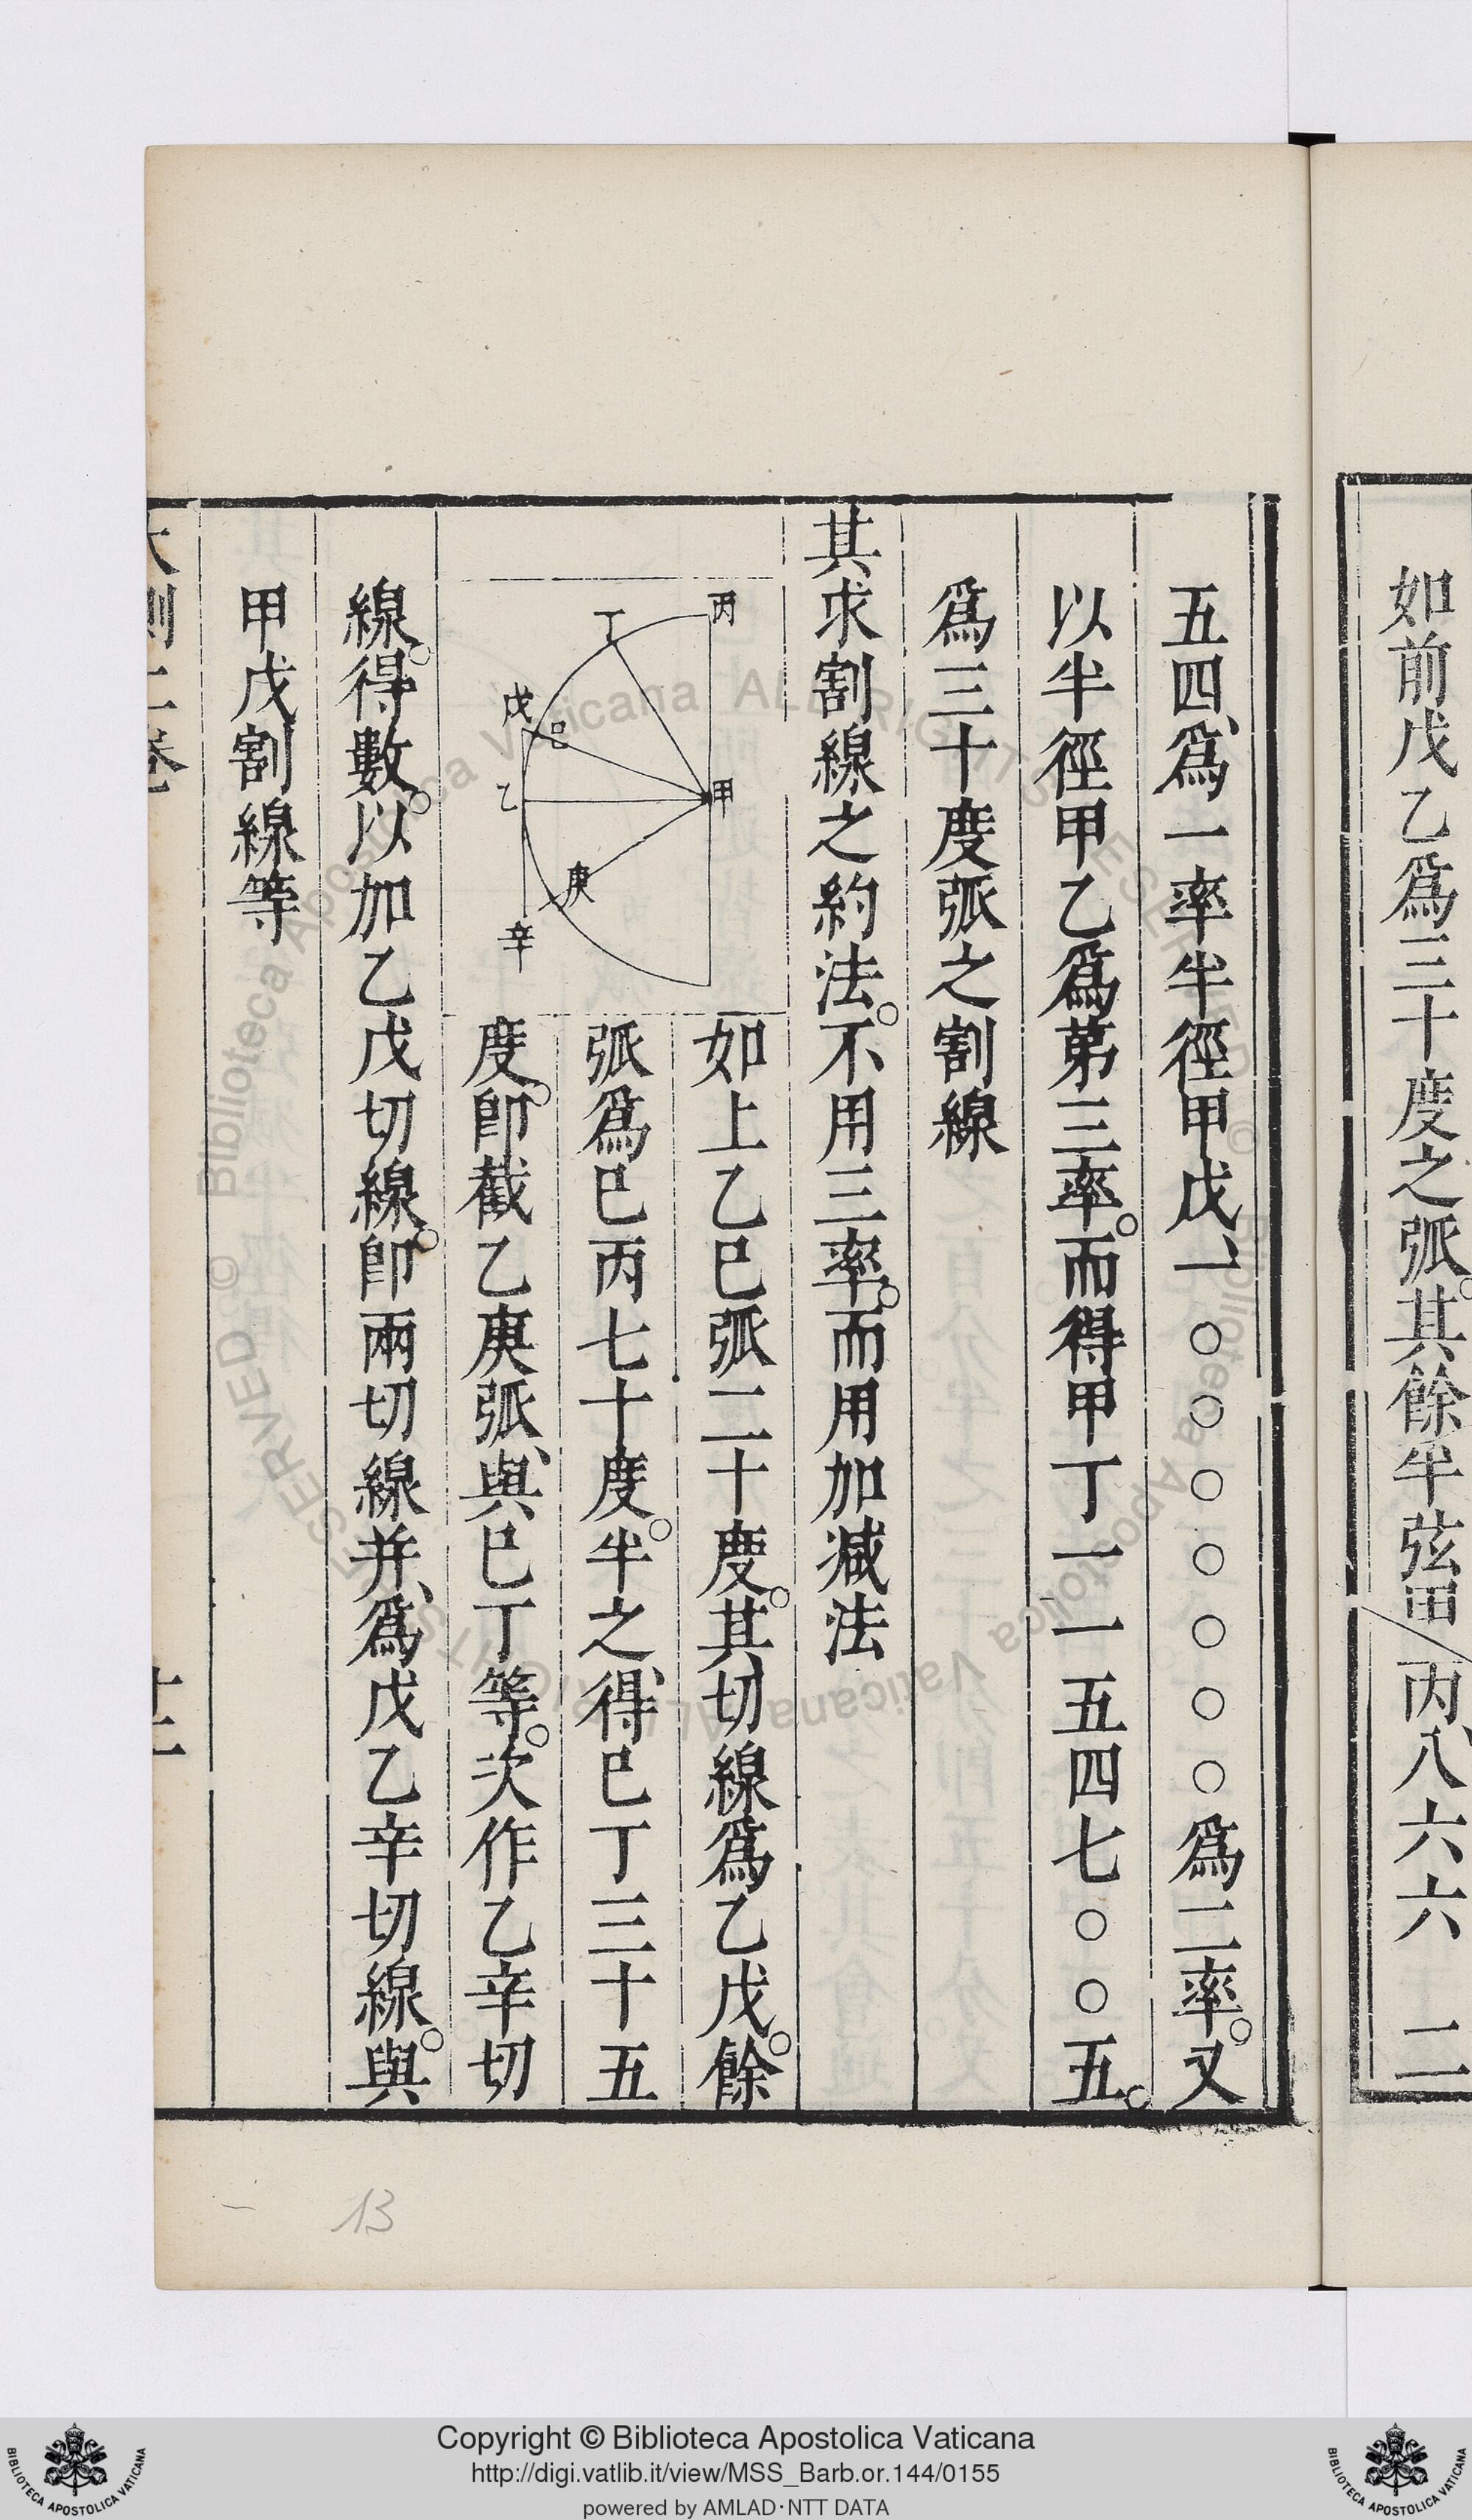 如前戊乙爲三十度之弧。其餘半弦甲丙、八六六二
五四、爲一率半徑甲戊、一〇〇〇〇〇〇〇爲二率。又
以半徑甲乙爲第三率。而得甲丁一一五四七〇〇五。
爲三十度弧之割線
其求割線之約法。不用三率。而用加减法
丙
丁
戊
己
甲
乙
庚
辛
如上乙巳弧二十度。其切線爲乙戊。餘
弧爲巳丙七十度。半之、得巳丁三十五
度。卽截乙庚弧、與巳丁等。次作乙辛切
線。得數。以加乙戊切線。卽兩切線并、爲戊乙辛切線。與
甲戊割線等
大測二卷
十二
13
Biblioteca Apostolica Vaticana ALL RIGHTS RESERVED ©
Copyright © Biblioteca Apostolica Vaticana
http://digi.vatlib.it/view/MSS_Barb.or.144/0155
powered by AMLAD·NTT DATA
BIBLIOTECA APOSTOLICA VATICANA
BIBLIOTECA APOSTOLICA VATICANA